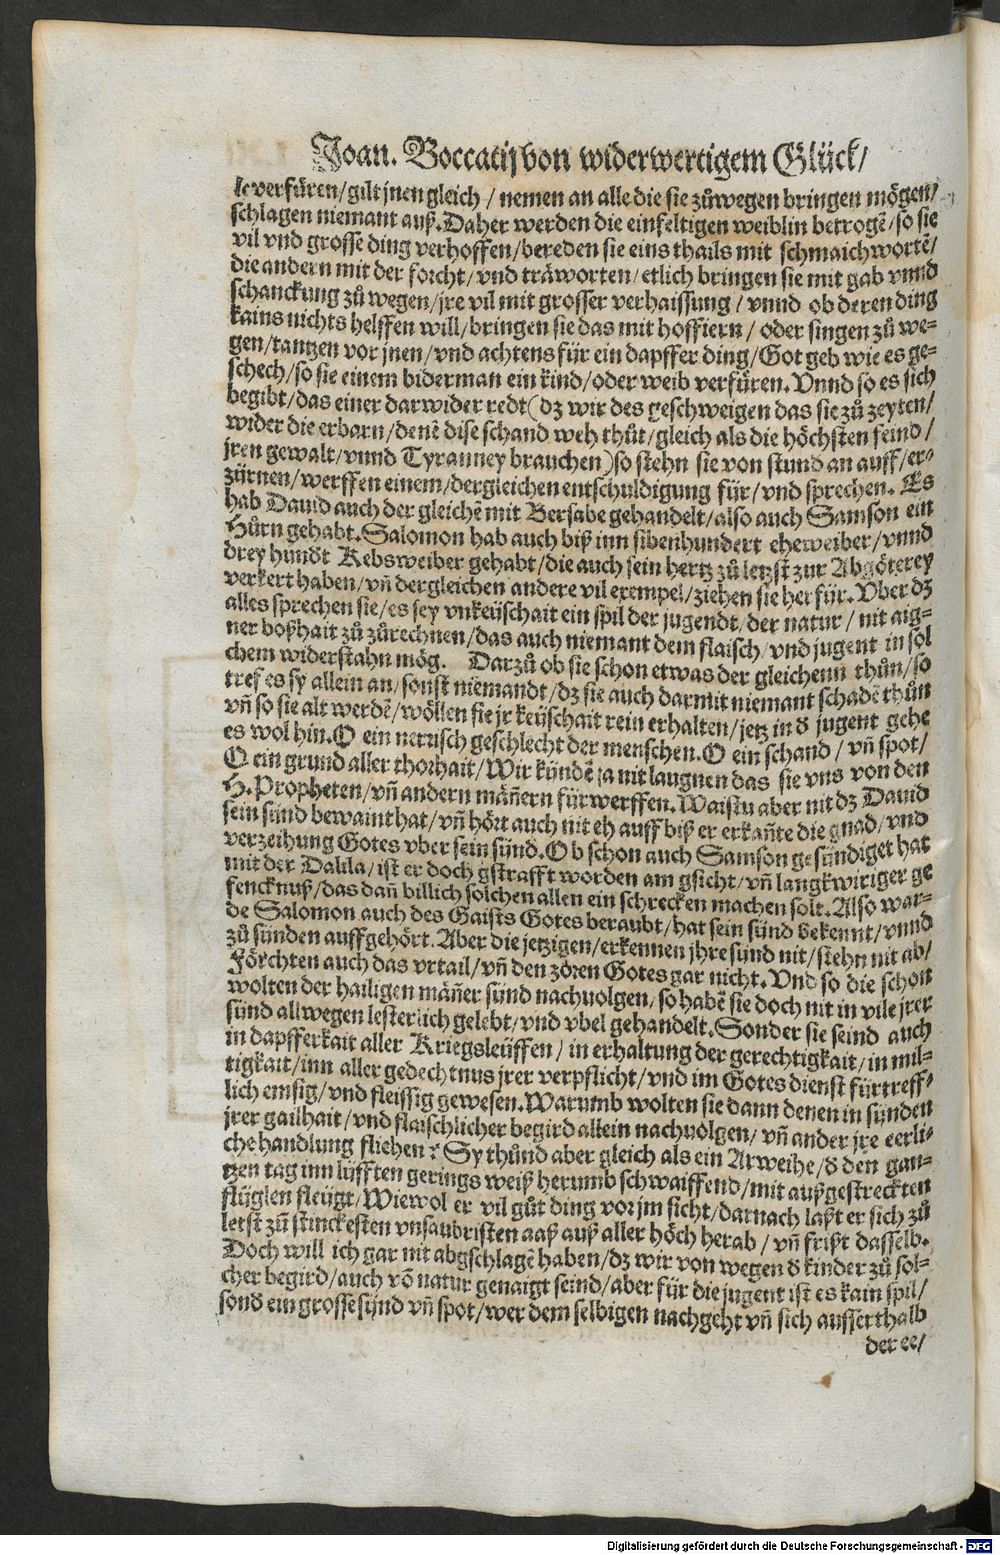 Joan. Boccatij von widerwertigem Glück/
le verfüren/gilt jnen gleich / nemen an alle die sie zůwegen bringen mögen/
schlagen niemant auß. Daher werden die einfeltigen weiblin betrogẽ/so sie
vil vnd grosse ding verhoffen/bereden sie eins thails mit schmaichwortẽ/
die andern mit der forcht/vnd träworten/etlich bringen sie mit gab vnnd
schanckung zů wegen/jre vil mit grosser verhaissung / vnnd ob deren ding
kains nichts helffen will/bringen sie das mit hoffiern / oder singen zů we-
gen/tantzen vor jnen/vnd achtens für ein dapffer ding/Got geb wie es ge-
schech/so sie einem biderman ein kind/oder weib verfüren. Vnnd so es sich
begibt/das einer darwider redt(dz wir des geschweigen das sie zů zeyten/
wider die erbarn/denẽ dise schand weh thůt/gleich als die höchsten feind /
jren gewalt/vnnd Tyranney brauchen)so stehn sie von stund an auff/er-
zürnen/werffen einem/dergleichen entschuldigung für/vnd sprechen. Es
hab Dauid auch der gleichẽ mit Bersabe gehandelt/also auch Samson ein
Hůrn gehabt. Salomon hab auch biß inn sibenhundert eheweiber/vnnd
drey hundt Kebsweiber gehabt/die auch sein hertz zů letzst zur Abgöterey
verkert haben/vñ dergleichen andere vil exempel/ziehen sie her für. Vber dz
alles sprechen sie/es sey vnkeüschait ein spil der jugendt/der natur / nit aig-
ner boßhait zů zůrechnen/das auch niemant dem flaisch/vnd jugent in sol
chem widerstahn mög. Darzů ob sie schon etwas der gleichenn thůn/so
tref es sy allein an/sonst niemandt/dz sie auch darmit niemant schadẽ thůn
vñ so sie alt werdẽ/wöllen sie jr keüschait rein erhalten/jetz in d jugent gehe
es wol hin. O ein nerrisch geschlecht der menschen. O ein schand / vñ spot/
O ein grund aller thorhait/Wir kyndẽ ja nit laugnen das sie vns von den
H. Propheten/vñ andern mäñern fürwerffen. Waistu aber nit dz Dauid
sein sünd bewaint hat/vñ hört auch nit eh auff biß er erkañte die gnad/vnd
verzeihung Gotes vber sein sünd. Ob schon auch Samson gesündiget hat
mit der Dalila/ist er doch gstrafft worden am gsicht/vñ langkwiriger ge
fencknuß/das dañ billich solchen allen ein schrecken machen solt. Also war-
de Salomon auch des Gaists Gotes beraubt/hat sein sünd bekennt/vnnd
zů sünden auffgehört. Aber die jetzigen/erkennen jhre sünd nit/stehn nit ab/
Förchten auch das vrtail/vñ den zoren Gotes gar nicht. Vnd so die schon
wolten der hailigen mäñer sünd nachuolgen/so habẽ sie doch nit in vile jrer
sünd allwegen lesterlich gelebt/vnd vbel gehandelt. Sonder sie seind auch
in dapfferkait aller Kriegsleüffen / in erhaltung der gerechtigkait/in mil-
tigkait/inn aller gedechtnus jrer verpflicht/vnd im Gotes dienst fürtreff-
lich emsig/vnd fleissig gewesen. Warumb wolten sie dann denen in sünden
jrer gailhait/vnd flaischlicher begird allein nachuolgen/vñ ander jre eerli-
che handlung fliehen? Sy thůnd aber gleich als ein Arweihe/d den gan-
tzen tag inn lüfften gerings weiß herumb schwaiffend/mit außgestreckten
flüglen fleügt/Wiewol er vil gůt ding vor jm sicht/darnach laßt er sich zů
letst zů stinckesten vnsaubristen aaß auß aller höch herab / vñ frißt dasselb.
Doch will ich gar nit abgschlagẽ haben/dz wir von wegen d kinder zů sol-
cher begird/auch võ natur genaigt seind/aber für die jugent ist es kain spil/
sond ein grosse sünd vñ spot/wer dem selbigen nachgeht vñ sich ausserthalb
der ee/
Digitalisierung gefördert durch die Deutsche Forschungsgemeinschaft - DFG